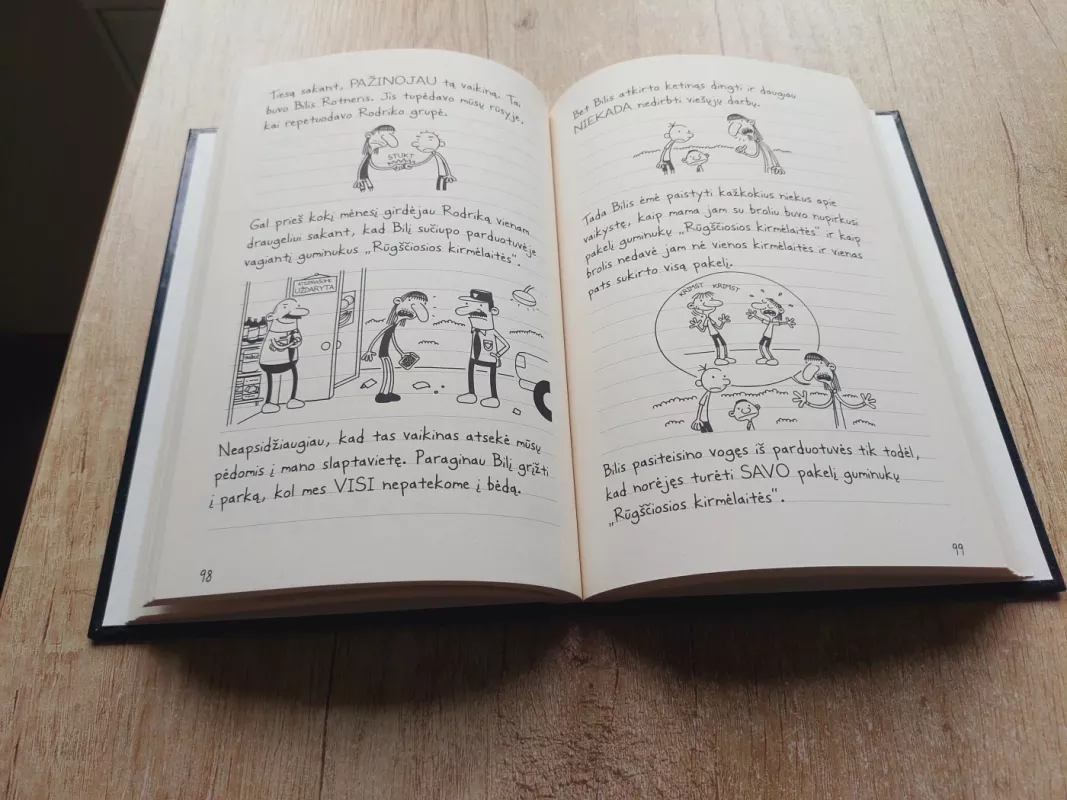 Tiesą sakant, PAŽINOJAU tą vaikiną. Tai
buvo Bilis Rotneris. Jis tupėdavo mūsų rūsyje,
kai repetuodavo Rodriko grupė.
STUKT
Gal prieš kokį mėnesį girdėjau Rodriką vienam
draugeliui sakant, kad Bilį sučiupo parduotuvėje
vagiantį guminukus „Rūgščiosios kirmėlaitės“.
ATSIPRAŠOME
UŽDARYTA
Neapsidžiaugiau, kad tas vaikinas atsekė mūsų
pėdomis į mano slaptavietę. Paraginau Bilį grįžti
į parką, kol mes VISI nepatekome į bėdą.
98
Bet Bilis atkirto ketinąs dingti ir daugiau
NIEKADA nedirbti viešųjų darbų.
Tada Bilis ėmė paistyti kažkokius niekus apie
vaikystę, kaip mama jam su broliu buvo nupirkusi
pakelį guminukų „Rūgščiosios kirmėlaitės“ ir kaip
brolis nedavė jam nė vienos kirmėlaitės ir vienas
pats sukirto visą pakelį.
KRIMST KRIMST
Bilis pasiteisino vogęs iš parduotuvės tik todėl,
kad norėjęs turėti SAVO pakelį guminukų
„Rūgščiosios kirmėlaitės“.
99